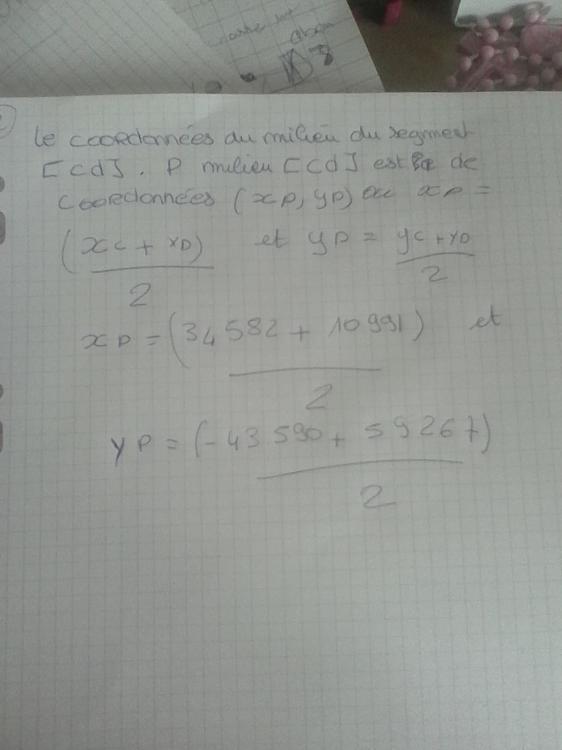 le coordonnées du milieu du segment
[cd]. P milieu [cd] est de
coordonnées (xP, yP) ou xP =
(xC + xD) / 2 et yP = yC + yD / 2
xP = (34 582 + 10 991) / 2 et
yP = (-43 590 + 59 267) / 2